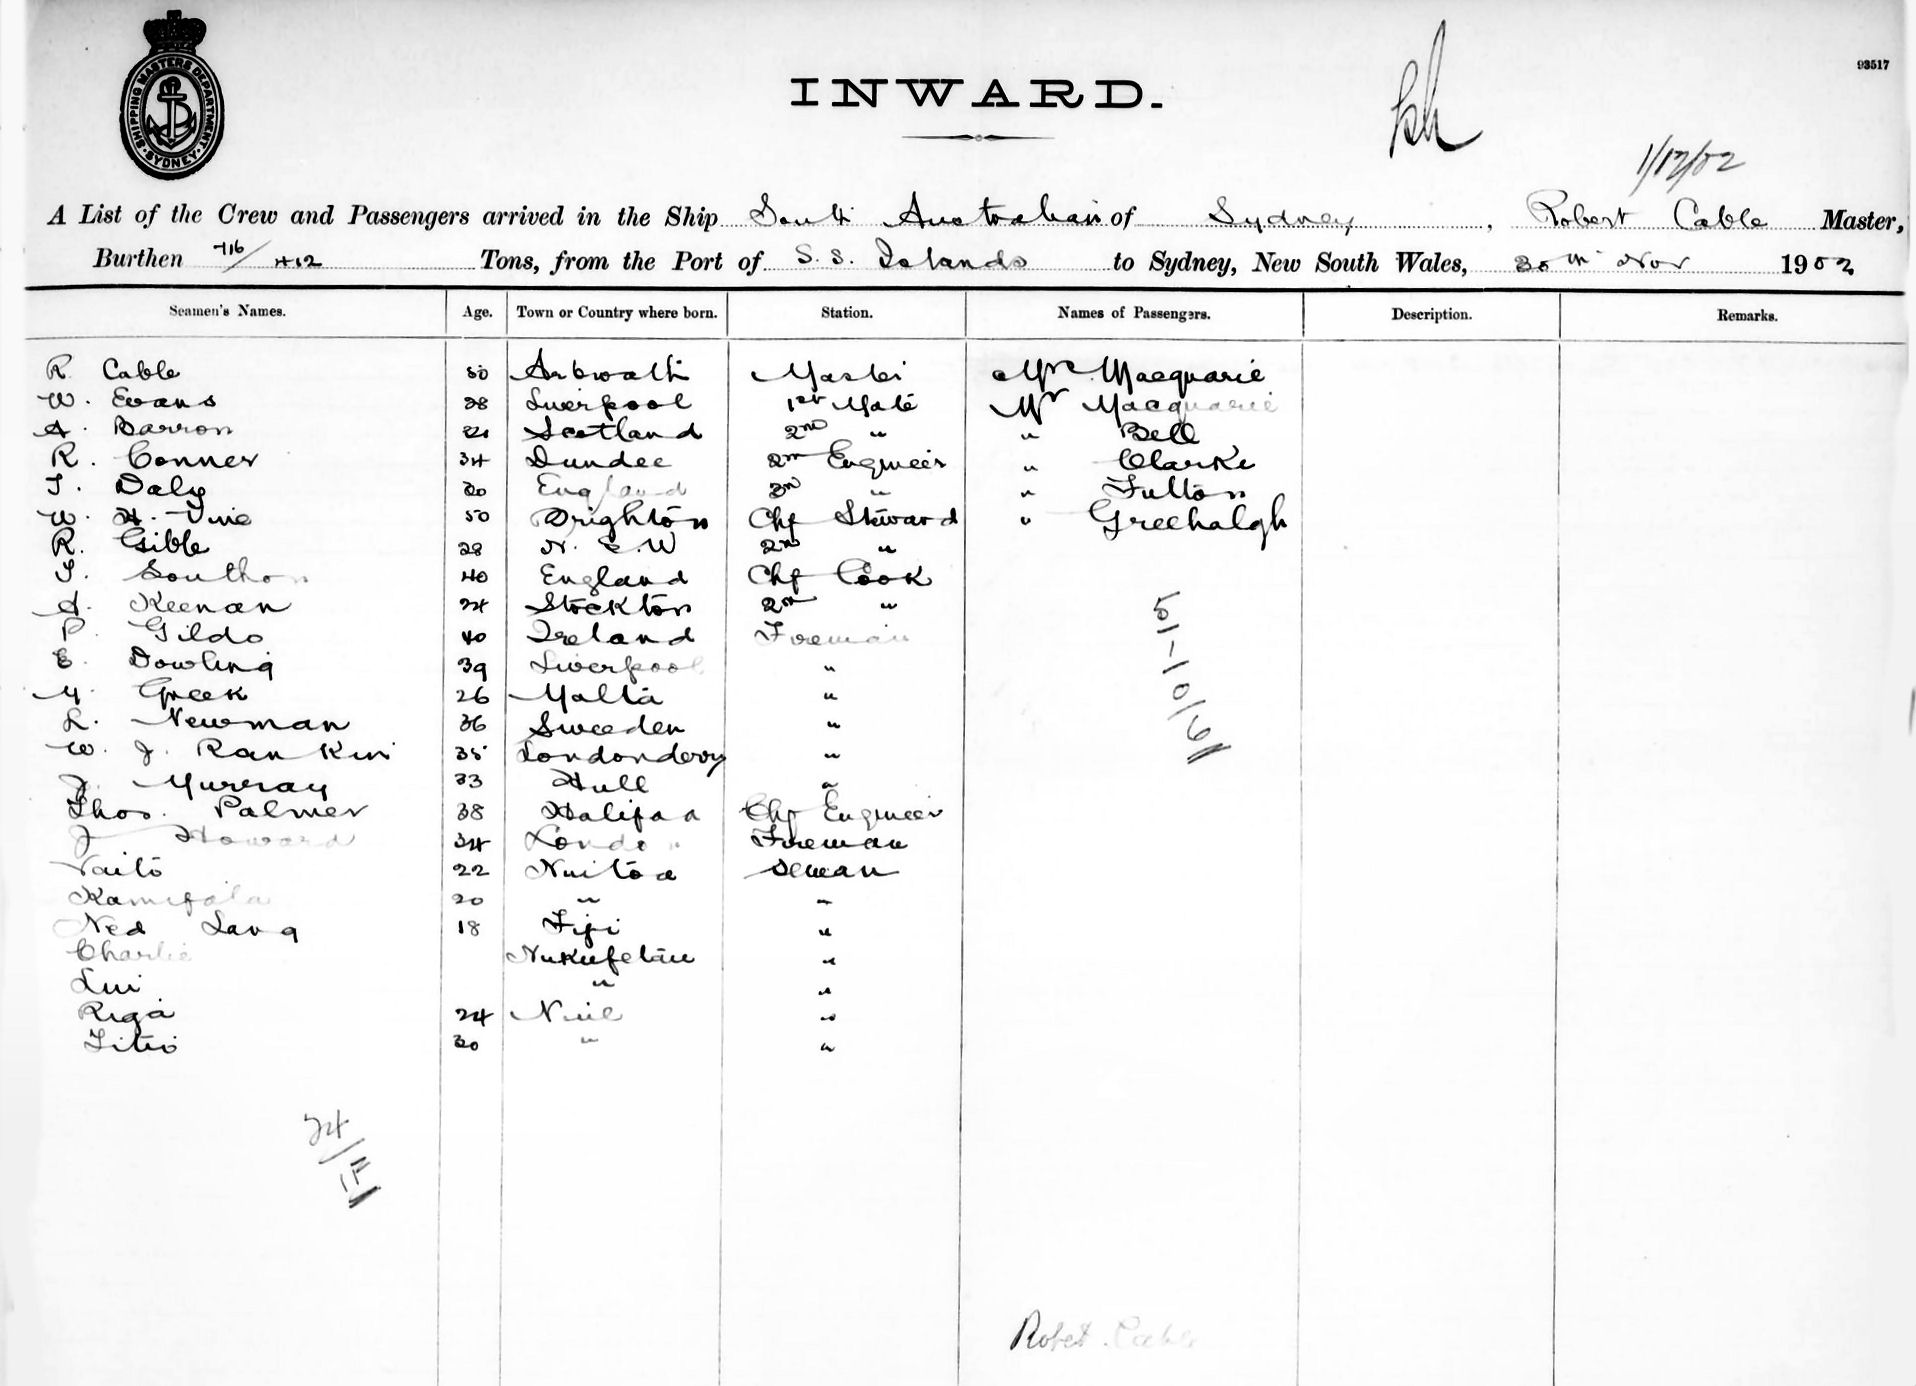 SHIPPING MASTERS DEPARTMENT
SYDNEY
INWARD.
93517
1/12/02
A List of the Crew and Passengers arrived in the Ship South Australian of Sydney, Robert Cable Master,
Burthen 716/412 Tons, from the Port of S. S. Islands to Sydney, New South Wales, 30th Nov 1902
Seamen's Names. Age. Town or Country where born. Station. Names of Passengers. Description. Remarks.
R. Cable 50 Arbroath Master Mrs Macquarie
W. Evans 28 Liverpool 1st Mate Mr Macquarie
A. Barron Scotland 2nd " " Bell
R. Conner 34 Dundee 2nd Engineer " Clarke
T. Daly England 3rd " " Fulton
W. H. Vine 50 Brighton Chf Steward " Greehalgh
R. Gible 28 N. S. W 2nd "
T. Southon 40 England Chf Cook
A. Keenan 24 Stockton 2nd "
P. Gildo 40 Ireland Fireman
E. Dowling 39 Liverpool "
M. Greek 26 Malta "
L. Newman 36 Sweeden "
W. J. Rankin 35 Londonderry "
J. Murray 33 Hull "
Thos. Palmer 38 Halifax Chf Engineer
J Howard 34 London Fireman
Vaito 22 Nuitoa Seman
20 " "
Ned Lang 18 Fiji "
Charlie Nukufetau "
Lui " "
Riga 24 Niue "
Titio 30 " "
Robert Cable